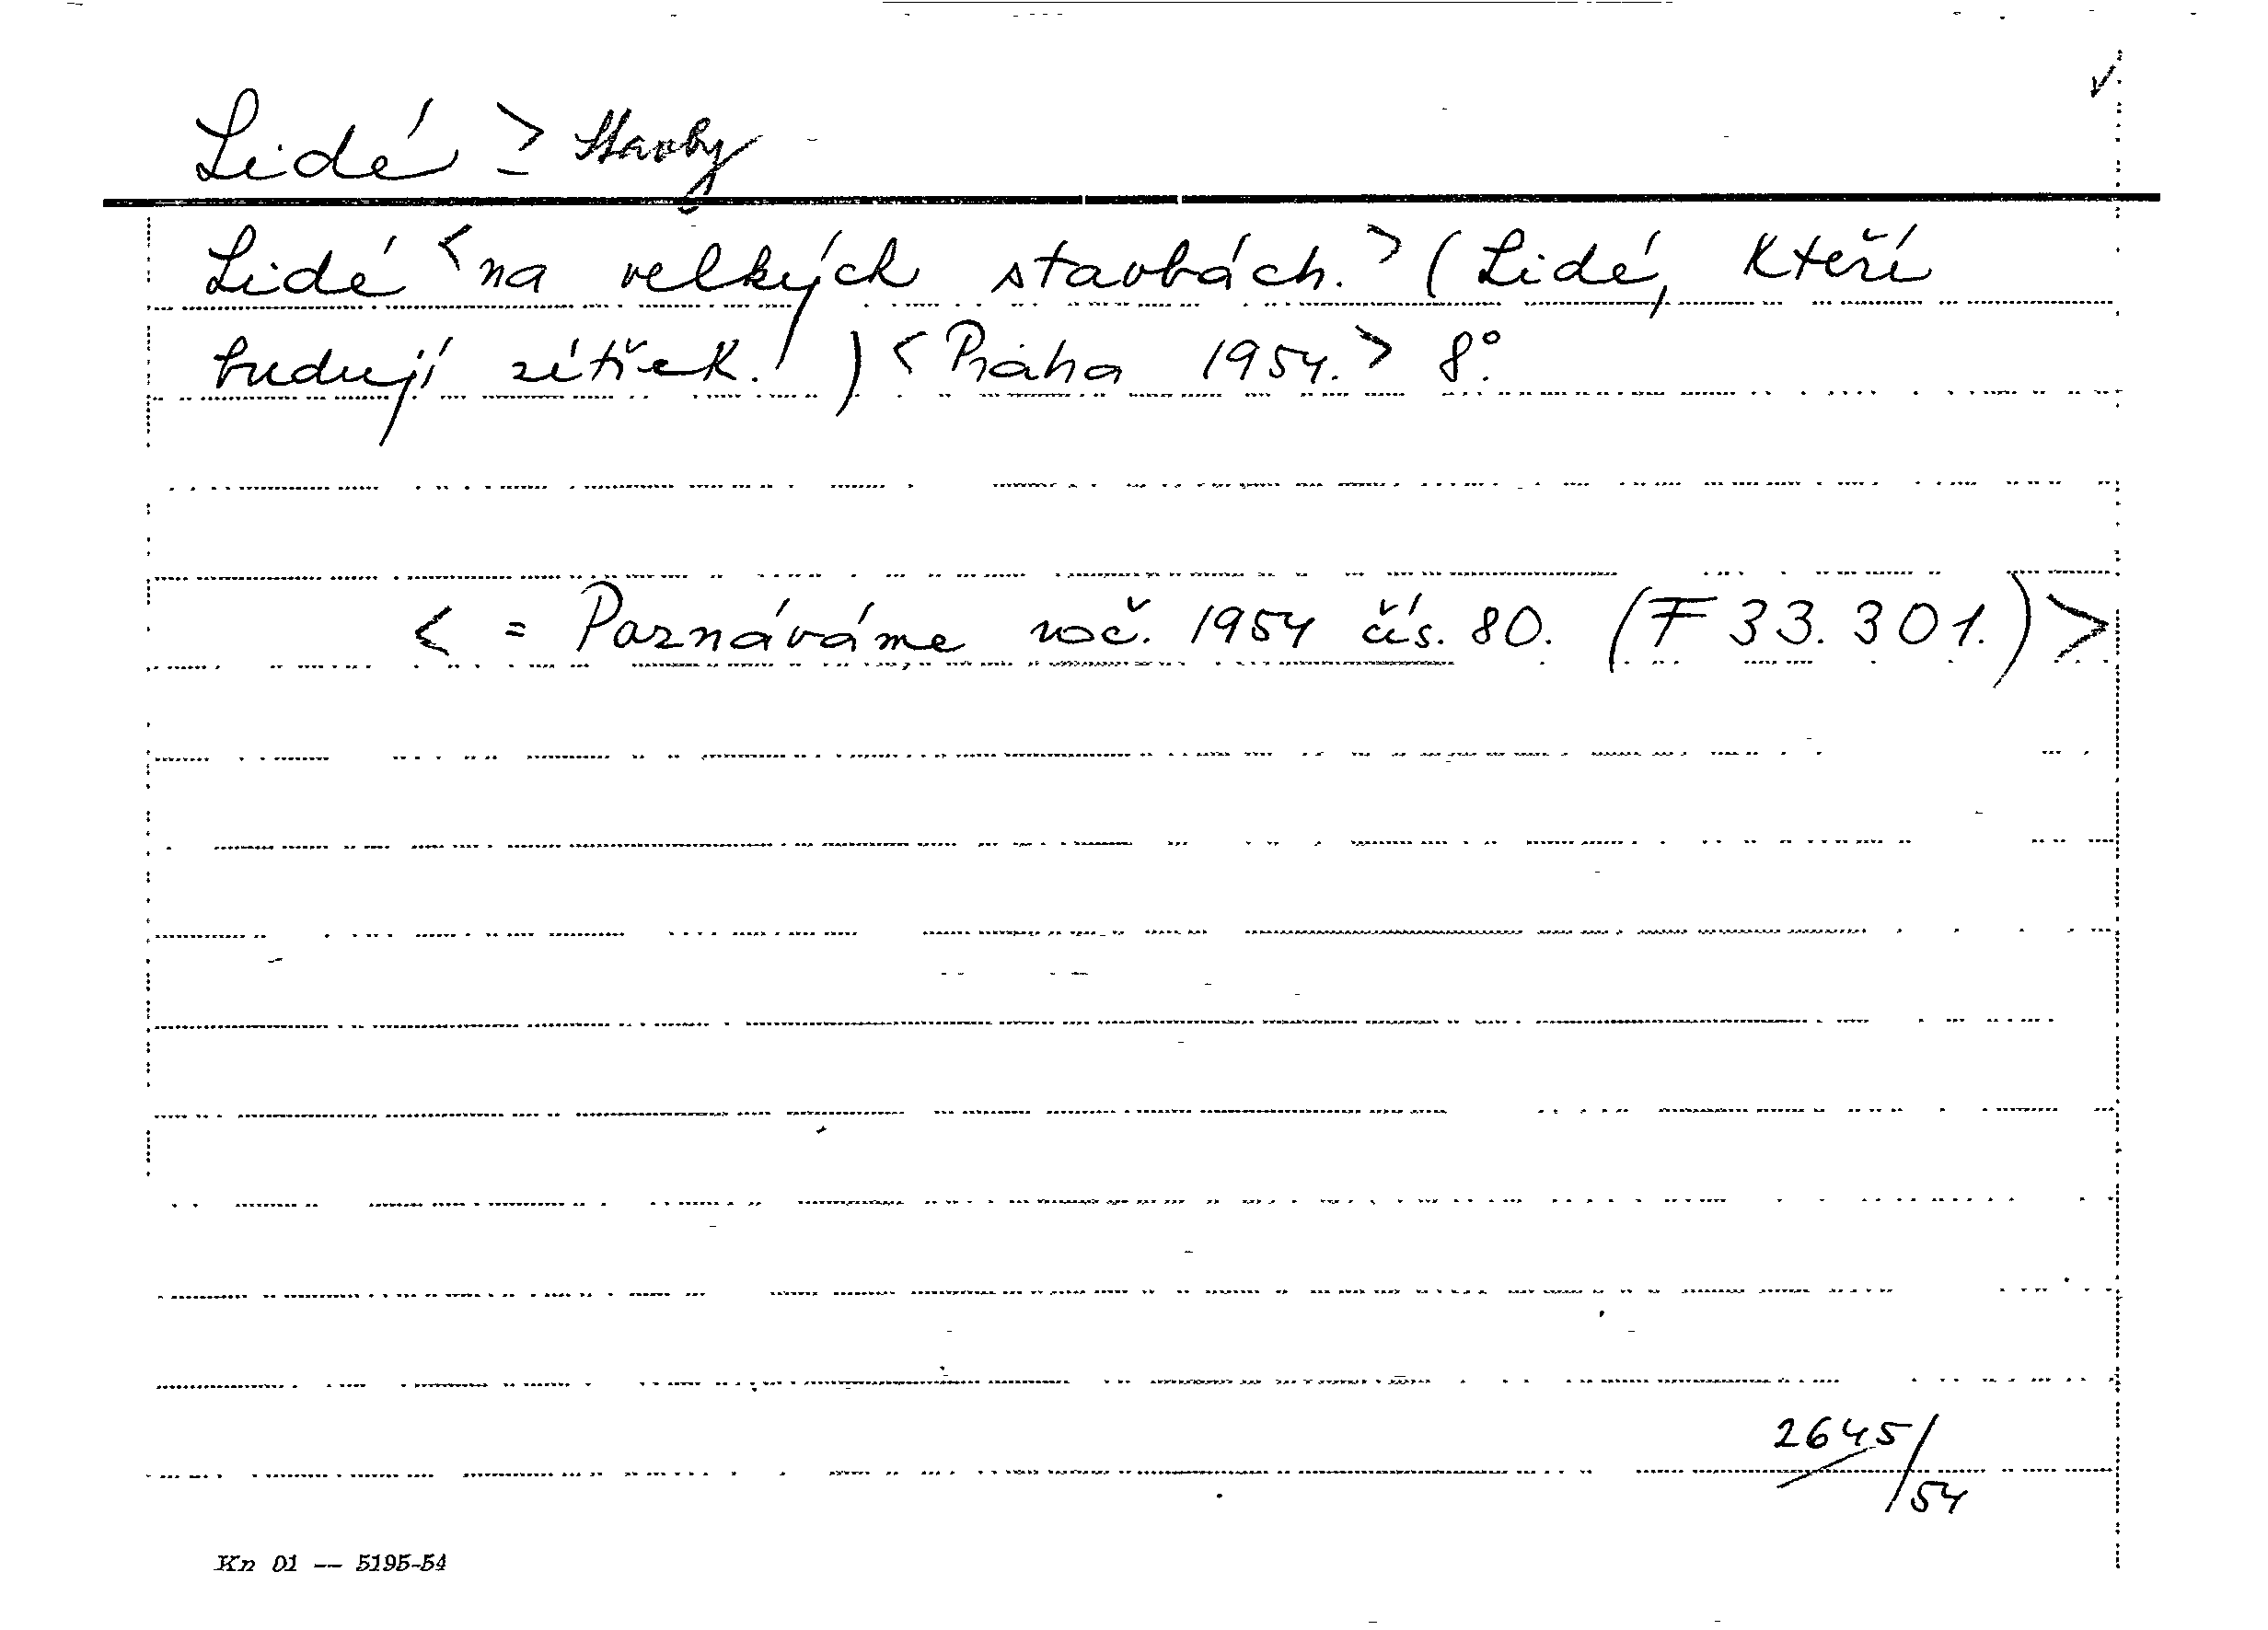 Lidé > Stavby
Lidé <na velkých stavbách.> (Lidé, kteří
budují zítřek.) <Praha 1954.> 8°.
< = Poznáváme roč. 1954 čís. 80. (F 33.301.)>
2645/54
Kn 01 -- 5195-54